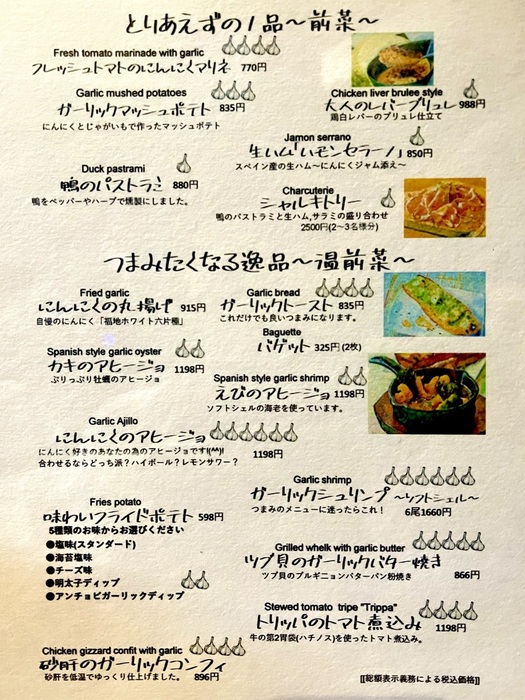 とりあえずの1品〜前菜〜
Fresh tomato marinade with garlic
フレッシュトマトのにんにくマリネ 770円
Garlic mushed potatoes
ガーリックマッシュポテト 835円
にんにくとじゃがいもで作ったマッシュポテト
Chicken liver brulee style
大人のレバーブリュレ 988円
鶏白レバーのブリュレ仕立て
Jamon serrano
生ハム"ハモンセラーノ" 850円
スペイン産の生ハム〜にんにくジャム添え〜
Duck pastrami
鴨のパストラミ 880円
鴨をペッパーやハーブで燻製にしました。
Charcuterie
シャルキトリー
鴨のパストラミと生ハム,サラミの盛り合わせ
2500円(2〜3名様分)
つまみたくなる逸品〜温前菜〜
Fried garlic
にんにくの丸揚げ 915円
自慢のにんにく「福地ホワイト六片種」
Garlic bread
ガーリックトースト 835円
これだけでも良いつまみになります。
Baguette
バゲット 325円(2枚)
Spanish style garlic oyster
カキのアヒージョ 1198円
ぷりっぷり牡蠣のアヒージョ
Spanish style garlic shrimp
えびのアヒージョ 1198円
ソフトシェルの海老を使っています。
Garlic Ajillo
にんにくのアヒージョ
にんにく好きのあなたの為のアヒージョです!(^^)!
合わせるならどっち派？ハイボール？レモンサワー？
1198円
Garlic shrimp
ガーリックシュリンプ 〜ソフトシェル〜
つまみのメニューに迷ったらこれ！ 6尾1660円
Fries potato
味わいフライドポテト 598円
5種類のお味からお選びください
●塩味(スタンダード)
●海苔塩味
●チーズ味
●明太子ディップ
●アンチョビガーリックディップ
Grilled whelk with garlic butter
ツブ貝のガーリックバター焼き
ツブ貝のブルギニョンバターパン粉焼き 866円
Stewed tomato tripe "Trippa"
トリッパのトマト煮込み 1198円
牛の第2胃袋(ハチノス)を使ったトマト煮込み。
Chicken gizzard confit with garlic
砂肝のガーリックコンフィ
砂肝を低温でゆっくり仕上げました。 896円
[[総額表示義務による税込価格]]